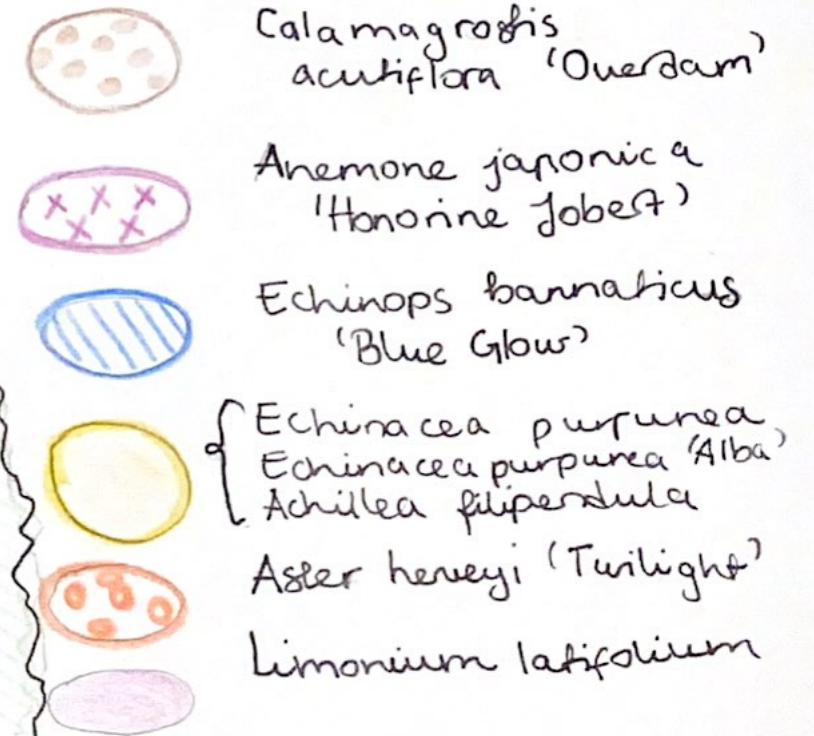 Calamagrostis
acutiflora 'Overdam'
Anemone japonica
'Honorine Jobert'
Echinops bannaticus
'Blue Glow'
Echinacea purpurea
Echinacea purpurea 'Alba'
Achillea filipendula
Aster herveyi 'Twilight'
Limonium latifolium